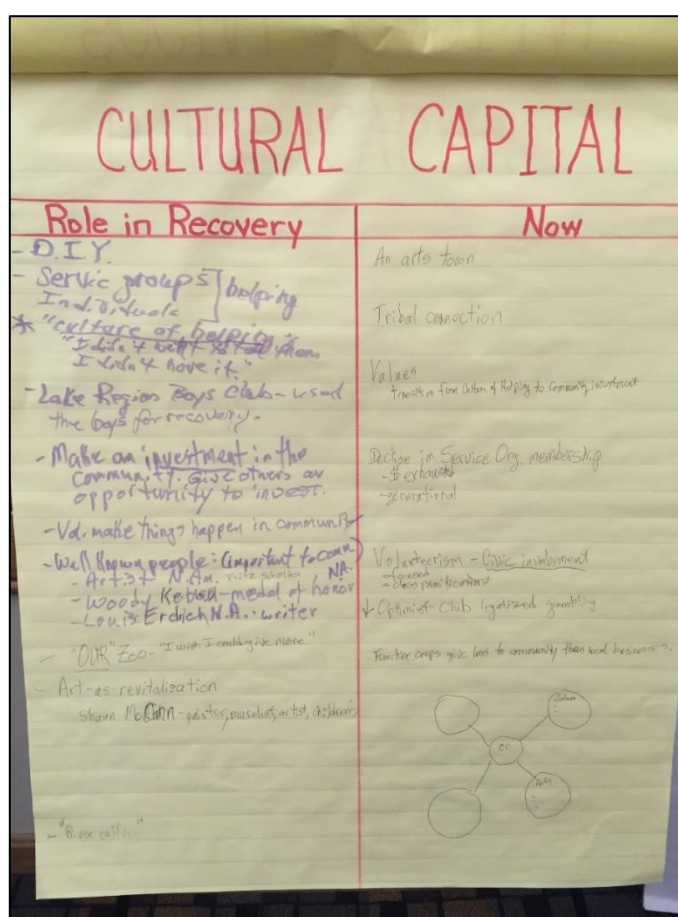 CULTURAL CAPITAL
Role in Recovery
- D.I.Y.
- Servic groups
Individuals
helping
* "culture of helping"
"I didn't want to tell them
I didn't have it."
- Lake Region Boys Club - used
the boys for recovery.
- Make an investment in the
community. Give others an
opportunity to invest.
- Vol. make things happen in community
- Well Known people: (important to comm)
- Artist N.Am. Fritz Scholder NA.
- Woody Keeble - medal of honor
- Louis Erdrich N.A. - writer
- "OUR" Zoo - "I wish I could give more."
- Art-as-revitalization
Shawn McCann - painter, muralist, artist, children's
- "River culture"
Now
An arts town
Tribal connection
Values
Transition from Culture of Helping to Community investment
Decline in Service Org. membership
- generational
Volunteerism - Civic involvement
↓ Optimist Club legalized gambling
give less to community than local businesses.
CC
Arts